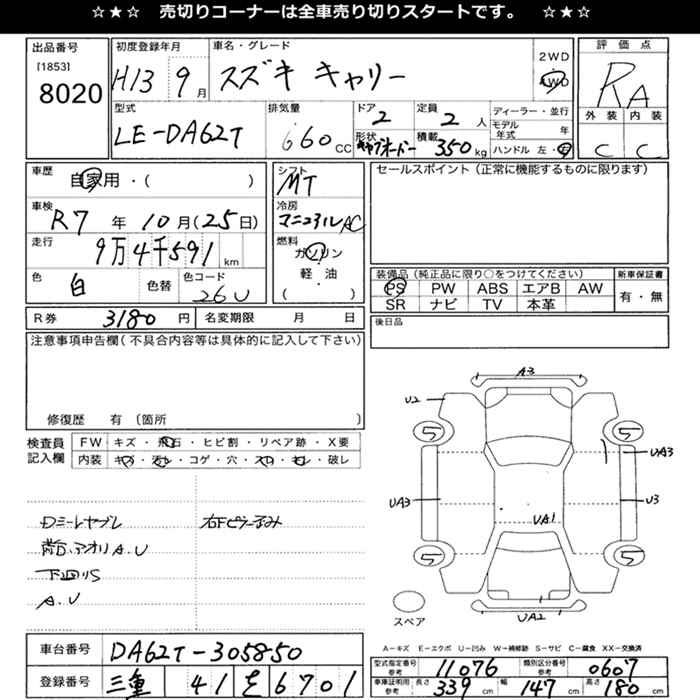 ☆★☆ 売切りコーナーは全車売り切りスタートです。 ☆★☆
出品番号
[1853]
8020
初度登録年月
H13 9月
車名・グレード
スズキ キャリー
2WD
4WD
評価点
RA
外装 内装
C C
型式
LE-DA62T
排気量
660 CC
ドア
2
形状
定員
2 人
積載
350 kg
ディーラー・並行
モデル年式 年
ハンドル 左・右
車歴
自家用・( )
車検
R7 年 10月(25日)
走行
9万4千591 km
色
白
色替
色コード
26U
シフト
MT
冷房
マニュアルAC
燃料
ガソリン
軽・油
( )
セールスポイント(正常に機能するものに限ります)
装備品(純正品に限り○をつけてください)
PS PW ABS エアB AW
SR ナビ TV 本革
新車保証書
有・無
R券 3180 円
名変期限 月 日
後日品
注意事項申告欄(不具合内容等は具体的に記入して下さい)
修復歴 有 〔箇所 〕
検査員記入欄
FW キズ・飛石・ヒビ割・リペア跡・X要
内装 キズ・汚れ・コゲ・穴・スレ・キレ・破レ
ロミーレヤブレ
右下ピラー歪み
荷台、アオリA.U
下回りS
A.U
A3
U2
5
5
UA3
UA3
U3
UA1
5
5
UA2
スペア
A－キズ E－エクボ U－凹み W－補修跡 S－サビ C－腐食 XX－交換済
車台番号 DA62T-305850
登録番号 三重 41 を 6701
型式指定番号 参考 11076
類別区分番号 参考 0607
車庫証明用 参考 長さ 339 cm 幅 147 cm 高さ 180 cm